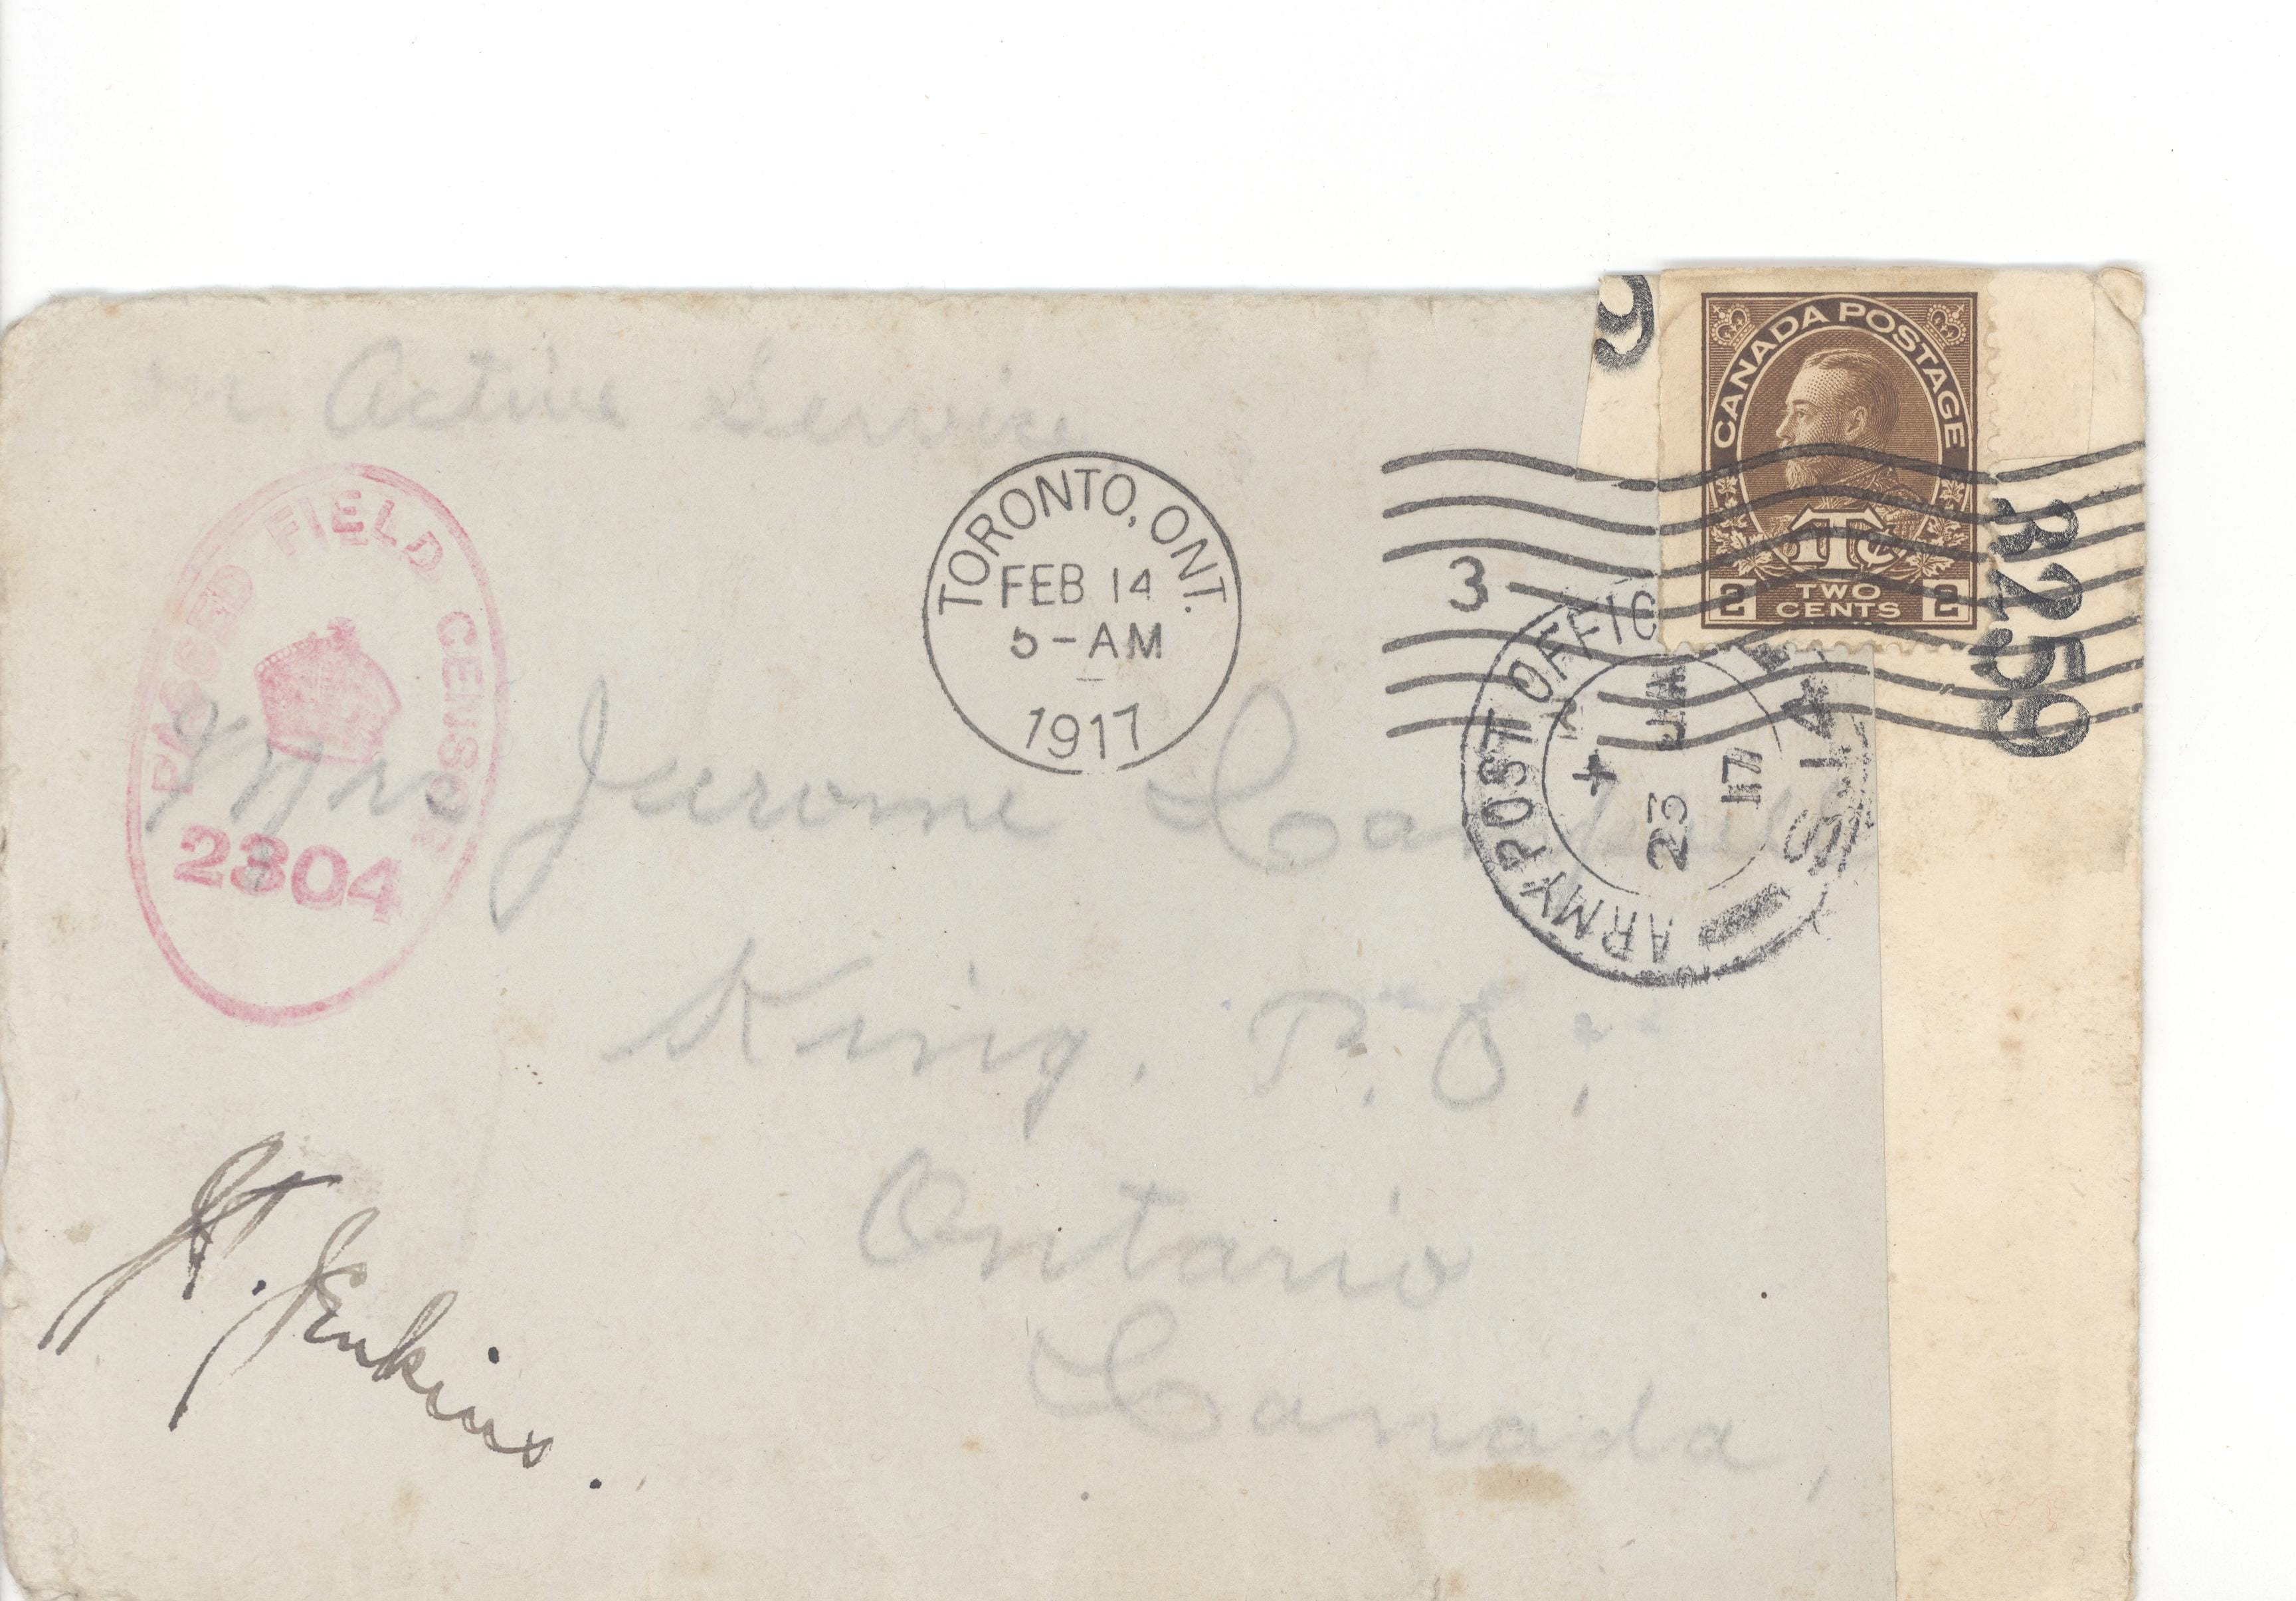 Active Service
9
CANADA POSTAGE
1Tc
2 TWO CENTS 2
R2259
TORONTO, ONT.
FEB 14
5-AM
1917
3
PASSED FIELD CENSOR
2304
ARMY POST OFFIC
S.14
4
23 JA
17
Mrs Jerome
King. P.O.
Ontario
Canada,
H. Jenkins.